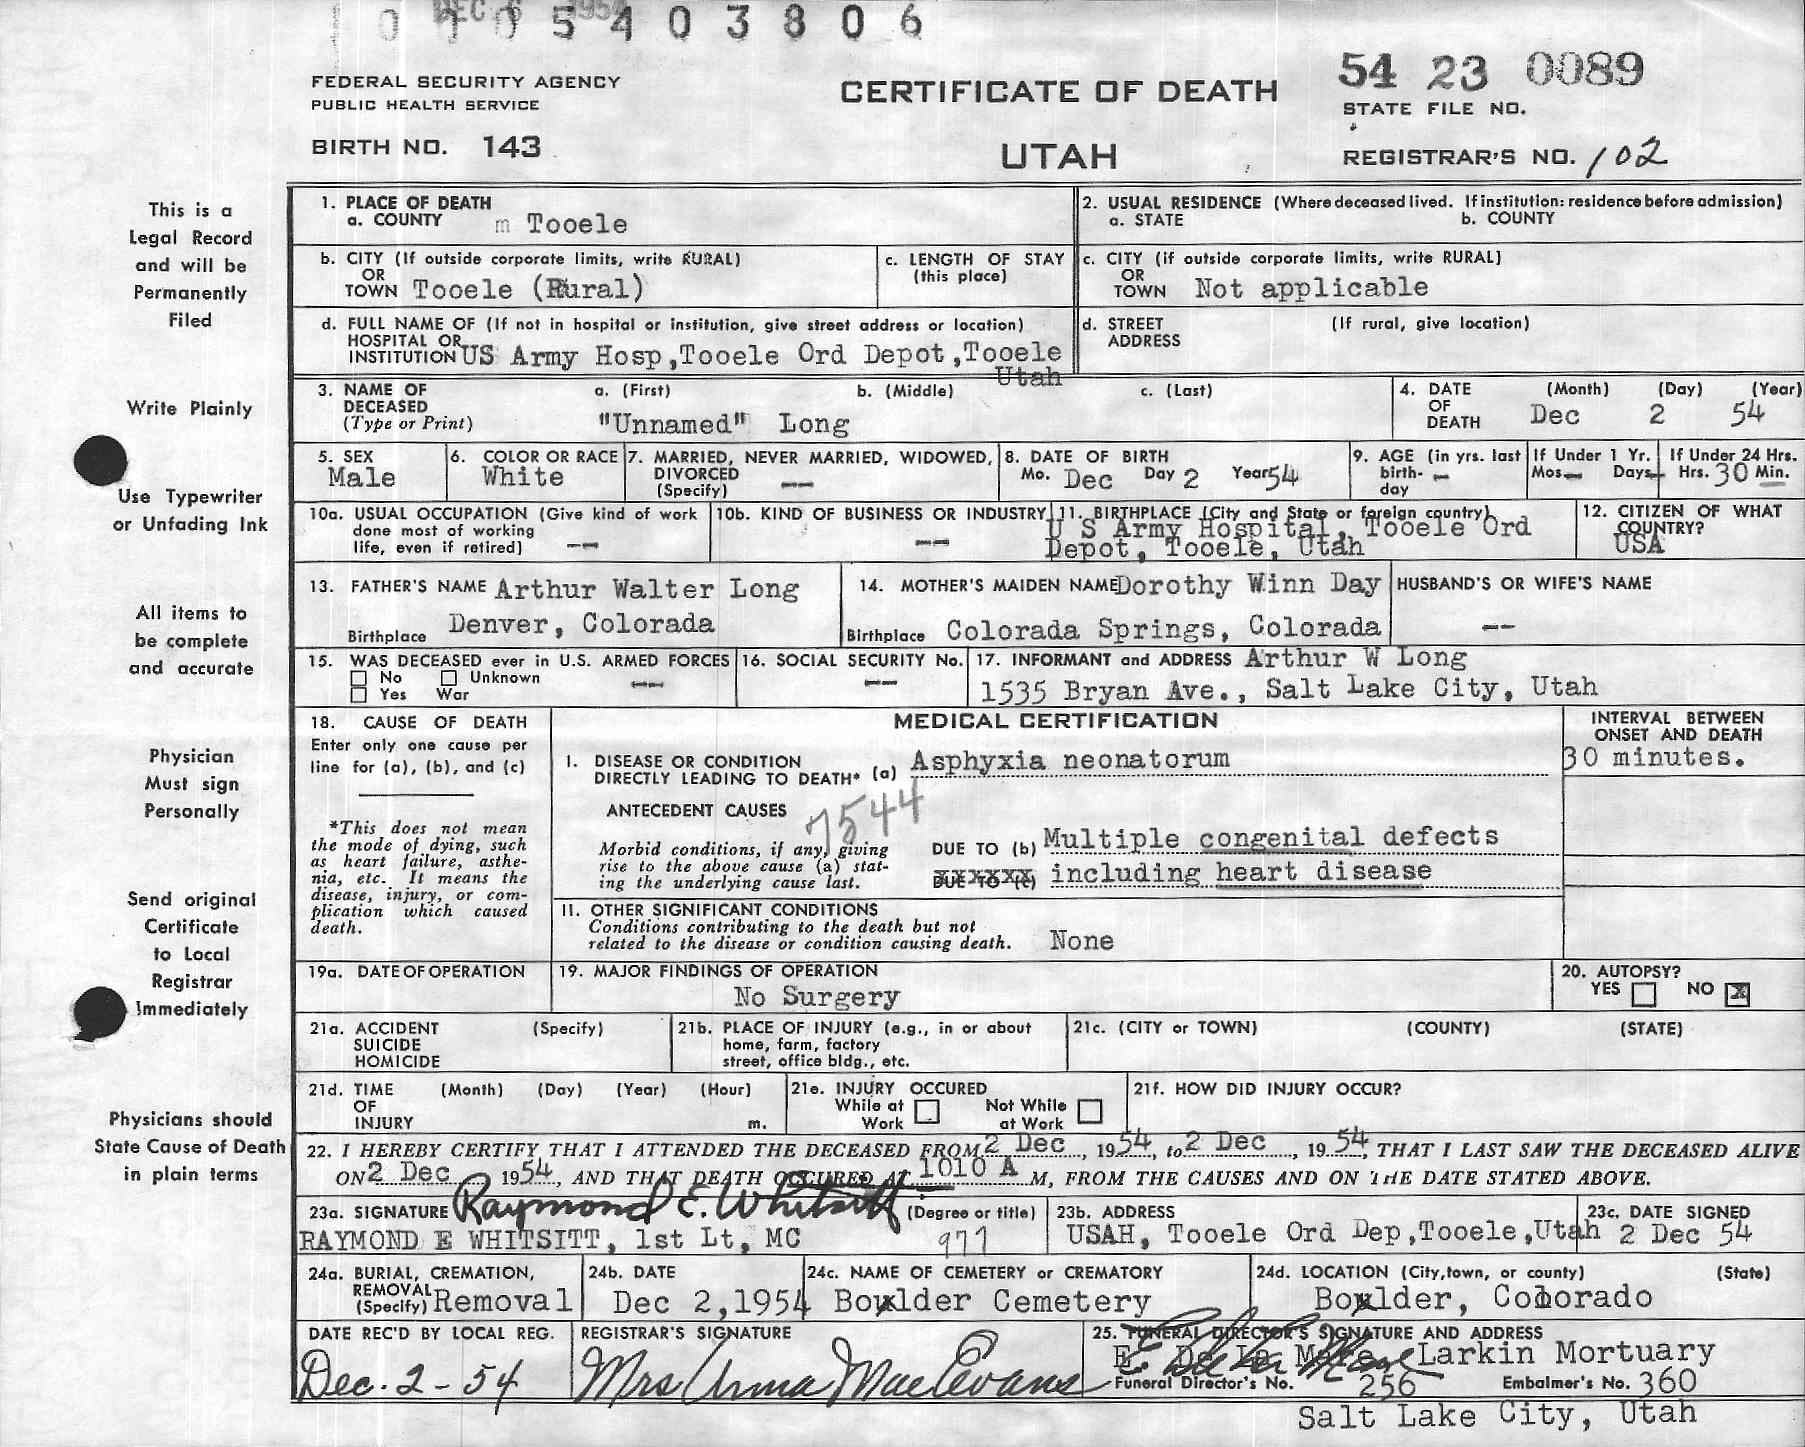 DEC 6 1954
0 0 5 4 0 3 8 0 6
54 23 0089
FEDERAL SECURITY AGENCY
PUBLIC HEALTH SERVICE
CERTIFICATE OF DEATH
STATE FILE NO.
BIRTH NO. 143
UTAH
REGISTRAR'S NO. 102
This is a
Legal Record
and will be
Permanently
Filed
Write Plainly
Use Typewriter
or Unfading Ink
All items to
be complete
and accurate
Physician
Must sign
Personally
Send original
Certificate
to Local
Registrar
Immediately
Physicians should
State Cause of Death
in plain terms
1. PLACE OF DEATH
a. COUNTY m Tooele
2. USUAL RESIDENCE (Where deceased lived. If institution: residence before admission)
a. STATE b. COUNTY
b. CITY (If outside corporate limits, write RURAL)
OR
TOWN Tooele (Rural)
c. LENGTH OF STAY
(this place)
c. CITY (if outside corporate limits, write RURAL)
OR
TOWN Not applicable
d. FULL NAME OF (If not in hospital or institution, give street address or location)
HOSPITAL OR
INSTITUTION US Army Hosp,Tooele Ord Depot,Tooele
Utah
d. STREET (If rural, give location)
ADDRESS
3. NAME OF a. (First) b. (Middle) c. (Last)
DECEASED
(Type or Print) "Unnamed" Long
4. DATE (Month) (Day) (Year)
OF
DEATH Dec 2 54
5. SEX
Male
6. COLOR OR RACE
White
7. MARRIED, NEVER MARRIED, WIDOWED,
DIVORCED
(Specify) --
8. DATE OF BIRTH
Mo. Dec Day 2 Year 54
9. AGE (in yrs. last
birth-
day --
If Under 1 Yr.
Mos-- Days--
If Under 24 Hrs.
Hrs. 30 Min.
10a. USUAL OCCUPATION (Give kind of work
done most of working
life, even if retired) --
10b. KIND OF BUSINESS OR INDUSTRY
--
11. BIRTHPLACE (City and State or foreign country)
U S Army Hospital, Tooele Ord
Depot, Tooele, Utah
12. CITIZEN OF WHAT
COUNTRY?
USA
13. FATHER'S NAME Arthur Walter Long
Birthplace Denver, Colorada
14. MOTHER'S MAIDEN NAME Dorothy Winn Day
Birthplace Colorada Springs, Colorada
HUSBAND'S OR WIFE'S NAME
--
15. WAS DECEASED ever in U.S. ARMED FORCES
No Unknown
Yes War --
16. SOCIAL SECURITY No.
--
17. INFORMANT and ADDRESS Arthur W Long
1535 Bryan Ave., Salt Lake City, Utah
18. CAUSE OF DEATH
Enter only one cause per
line for (a), (b), and (c)
*This does not mean
the mode of dying, such
as heart failure, asthe-
nia, etc. It means the
disease, injury, or com-
plication which caused
death.
MEDICAL CERTIFICATION
INTERVAL BETWEEN
ONSET AND DEATH
30 minutes.
I. DISEASE OR CONDITION
DIRECTLY LEADING TO DEATH* (a) Asphyxia neonatorum
ANTECEDENT CAUSES
7544
Morbid conditions, if any, giving
rise to the above cause (a) stat-
ing the underlying cause last.
DUE TO (b) Multiple congenital defects
DUE TO (c) including heart disease
II. OTHER SIGNIFICANT CONDITIONS
Conditions contributing to the death but not
related to the disease or condition causing death. None
19a. DATE OF OPERATION
19. MAJOR FINDINGS OF OPERATION
No Surgery
20. AUTOPSY?
YES NO X
21a. ACCIDENT (Specify)
SUICIDE
HOMICIDE
21b. PLACE OF INJURY (e.g., in or about
home, farm, factory
street, office bldg., etc.
21c. (CITY or TOWN) (COUNTY) (STATE)
21d. TIME (Month) (Day) (Year) (Hour)
OF
INJURY m.
21e. INJURY OCCURED
While at Not While
Work at Work
21f. HOW DID INJURY OCCUR?
22. I HEREBY CERTIFY THAT I ATTENDED THE DECEASED FROM 2 Dec, 1954, to 2 Dec, 1954, THAT I LAST SAW THE DECEASED ALIVE
ON 2 Dec 1954, AND THAT DEATH OCCURED AT 1010 A M, FROM THE CAUSES AND ON THE DATE STATED ABOVE.
23a. SIGNATURE Raymond E. Whitsitt (Degree or title)
RAYMOND E WHITSITT, 1st Lt, MC 977
23b. ADDRESS
USAH, Tooele Ord Dep,Tooele,Utah
23c. DATE SIGNED
2 Dec 54
24a. BURIAL, CREMATION,
REMOVAL
(Specify) Removal
24b. DATE
Dec 2,1954
24c. NAME OF CEMETERY or CREMATORY
Boulder Cemetery
24d. LOCATION (City,town, or county) (State)
Boulder, Colorado
DATE REC'D BY LOCAL REG.
Dec. 2 - 54
REGISTRAR'S SIGNATURE
Mrs Anna Mae Evans
25. FUNERAL DIRECTOR'S SIGNATURE AND ADDRESS
E. De La Mare Larkin Mortuary
Funeral Director's No. 256 Embalmer's No. 360
Salt Lake City, Utah